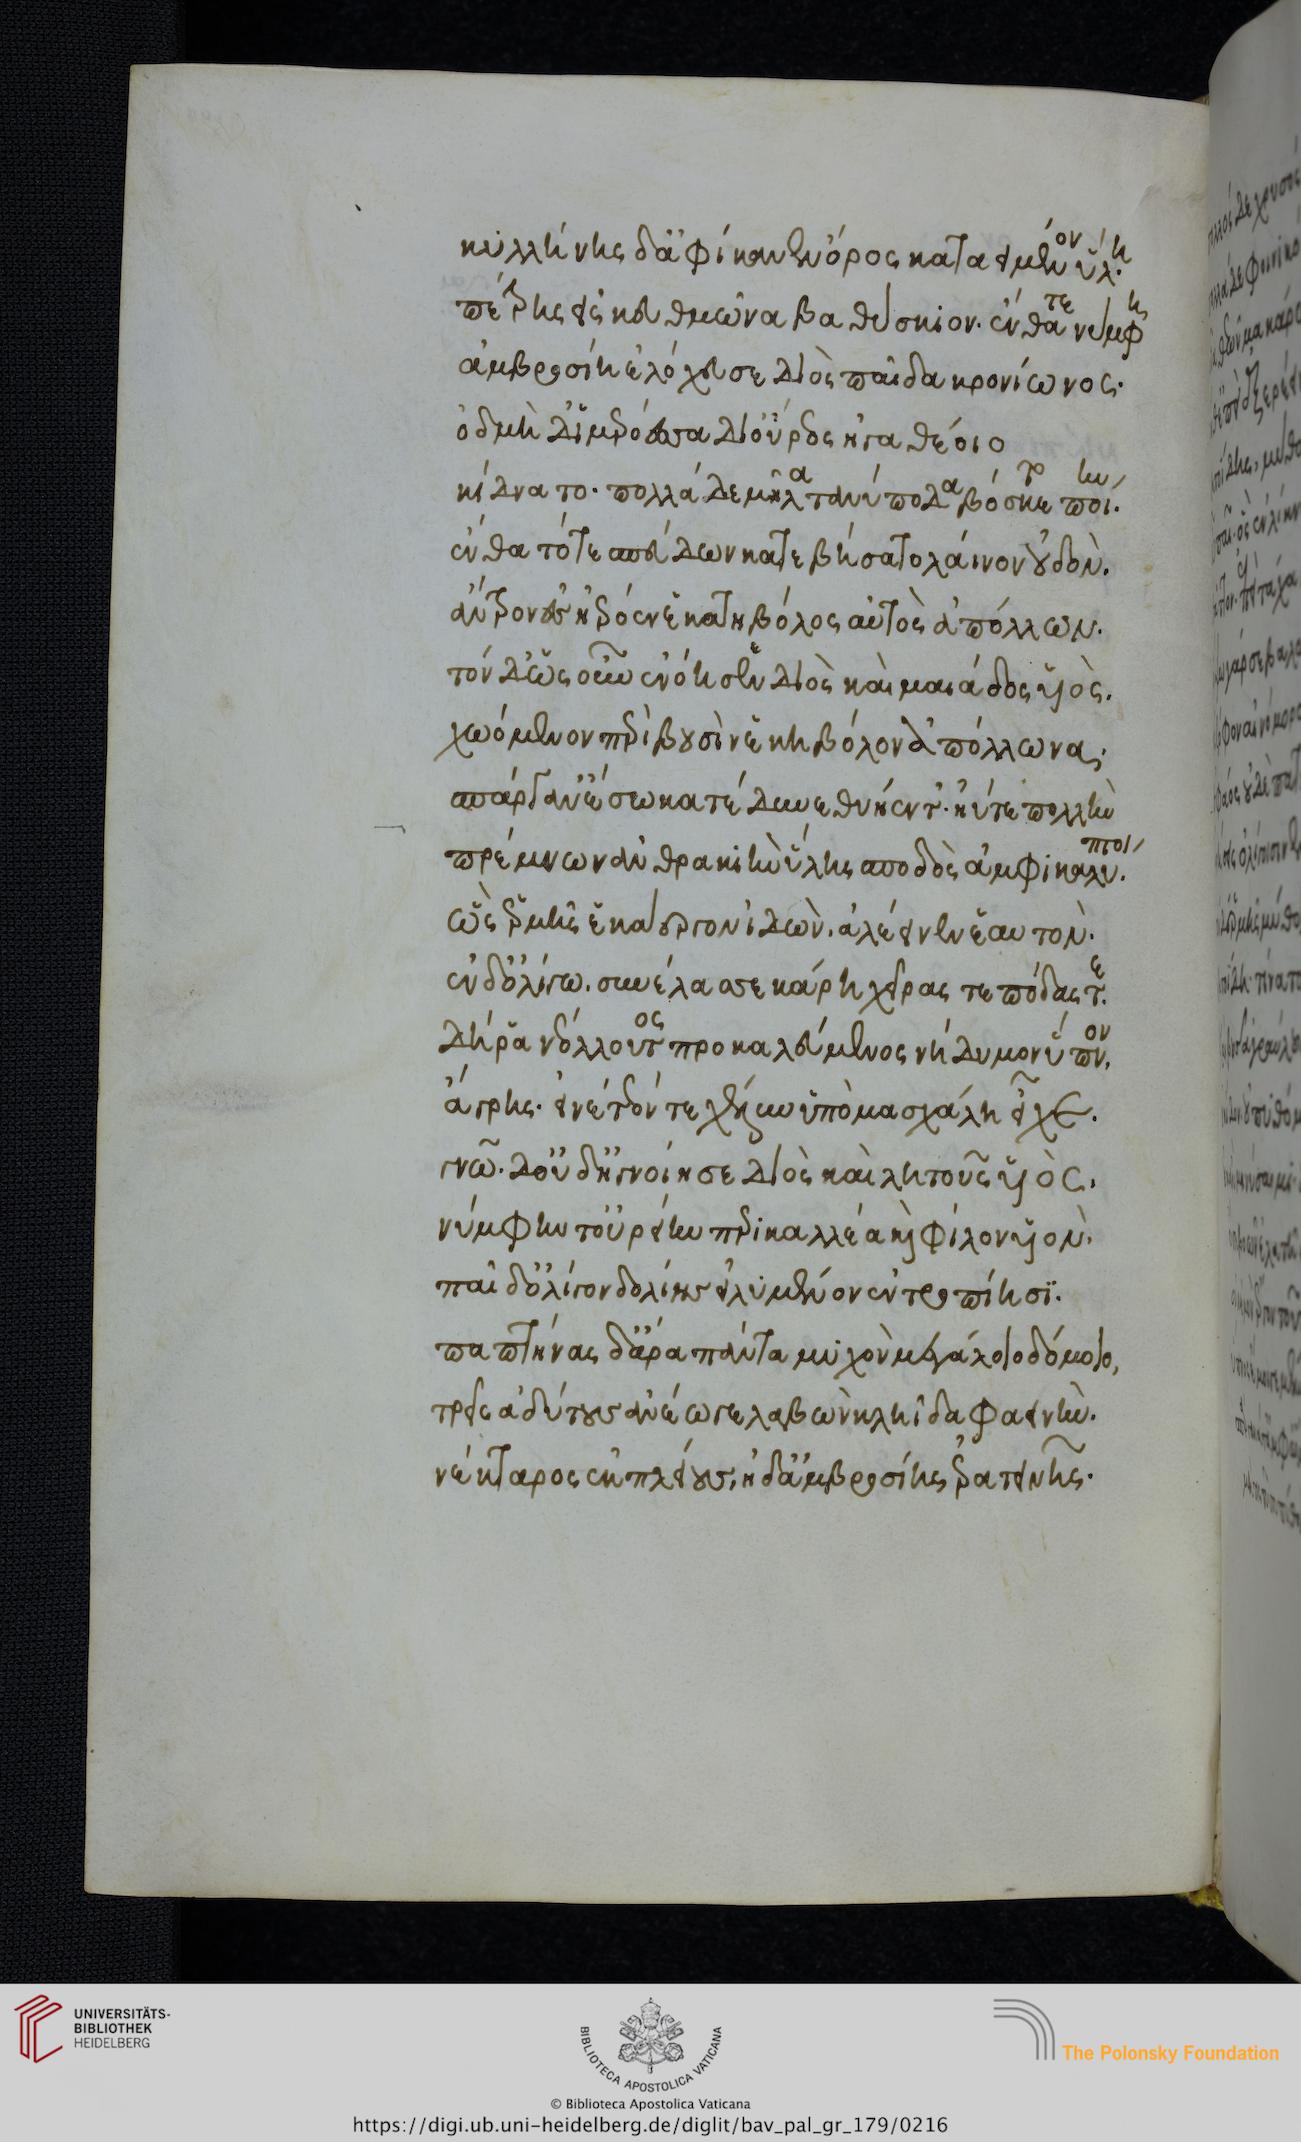 κυλλήνης δ' ἀφίκανεν ὄρος καταείμενον ὕλη.
πέτρης εἰς κευθμῶνα βαθύσκιον. ἔνθα τε νύμφη
ἀμβροσίη ἐλόχευσε διὸς παῖδα κρονίωνος.
ὀδμὴ δ' ἱμερόεσσα δι' οὔρεος ἠγαθέοιο
κίδνατο. πολλὰ δὲ μῆλα ταναύποδα βόσκετο ποίην.
ἔνθα τότε σπεύδων κατεβήσατο λάινον οὐδὸν.
ἄντρον ἐς ἠερόεν ἑκατηβόλος αὐτὸς ἀπόλλων.
τόν δ' ὡς οὖν ἐνόησεν διὸς καὶ μαιάδος υἱὸς.
χωόμενον περὶ βουσὶν ἑκηβόλον ἀπόλλωνα,
σπάργαν' ἔσω κατέδυνε θυήεντ'. ἠύτε πολλὴν
πρέμνων ἀνθρακιὴν ὕλης σποδὸς ἀμφικαλύπτοι.
ὣς ἑρμῆς ἑκάεργον ἰδὼν, ἀλέεινεν ἑαυτὸν.
ἐν δ' ὀλίγω. συνέλασσε κάρη χεῖρας τε πόδας τε.
δή ῥα νεόλλουτος προκαλεύμενος νήδυμον ὕπνον,
ἄγρης. εἰνέτεόν τε ὑπὸ μασχάλη εἶχε.
γνῶ. δ' οὐδ' ἠγνοίησε διὸς καὶ λητοῦς υἱὸς,
νύμφην τ' οὐρείην περικαλλέα καὶ φίλον υἱὸν.
παῖδ' ὀλίγον δολίης εἰλυμένον ἐντροπίησι.
παπτήνας δ' ἄρα πάντα μυχὸν μεγάλοιο δόμοιο,
τρεῖς ἀδύτους ἀνέωγε λαβὼν κληῖδα φαεινὴν.
νέκταρος ἐμπλείους, ἠδ' ἀμβροσίης ἐρατεινῆς.
UNIVERSITÄTS-
BIBLIOTHEK
HEIDELBERG
BIBLIOTECA APOSTOLICA VATICANA
The Polonsky Foundation
© Biblioteca Apostolica Vaticana
https://digi.ub.uni-heidelberg.de/diglit/bav_pal_gr_179/0216